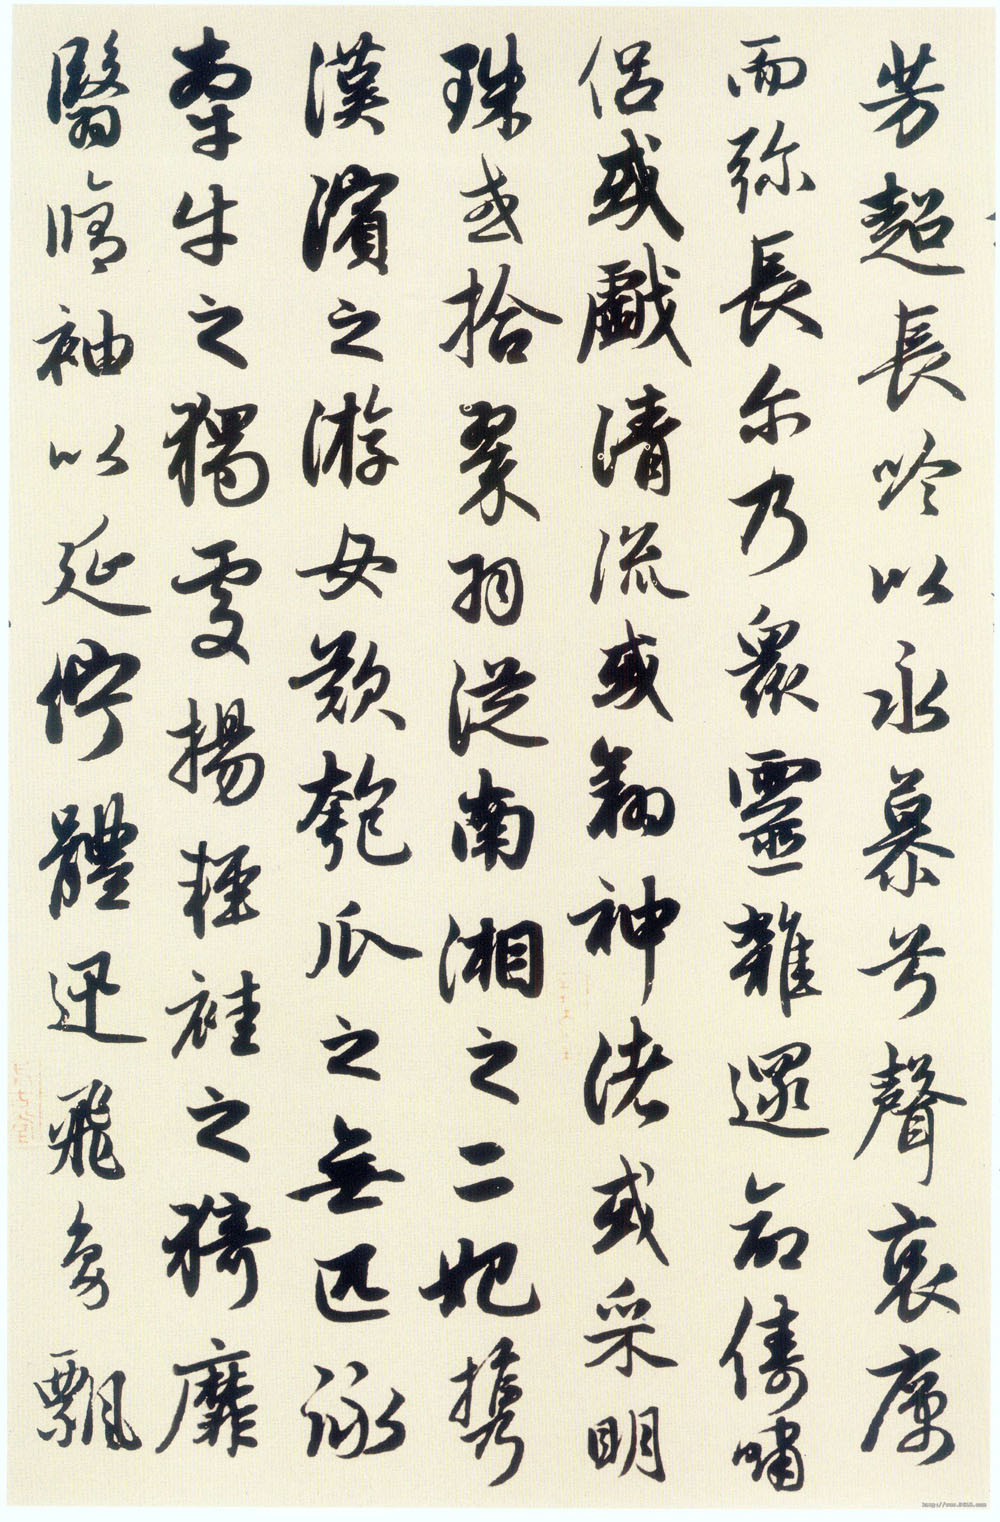 芳超長吟以永慕兮聲哀厲
而弥長尔乃衆靈雜遝命儔嘯
侶或戲清流或翔神渚或采明
珠或拾翠羽從南湘之二妃攜
漢濱之游女歎匏瓜之無匹詠
牽牛之獨處揚輕袿之猗靡
翳脩袖以延佇體迅飛鳧飄